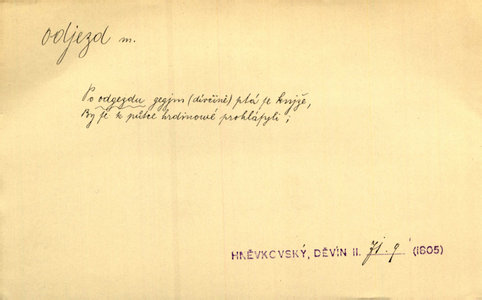 odjezd m.
Po odgezdu gegjm (divčině) ptá se knjže,
By se k půtce hrdinowé prohlásyli;
HNĚVKOVSKÝ, DĚVÍN II. 71. 9 (1805)